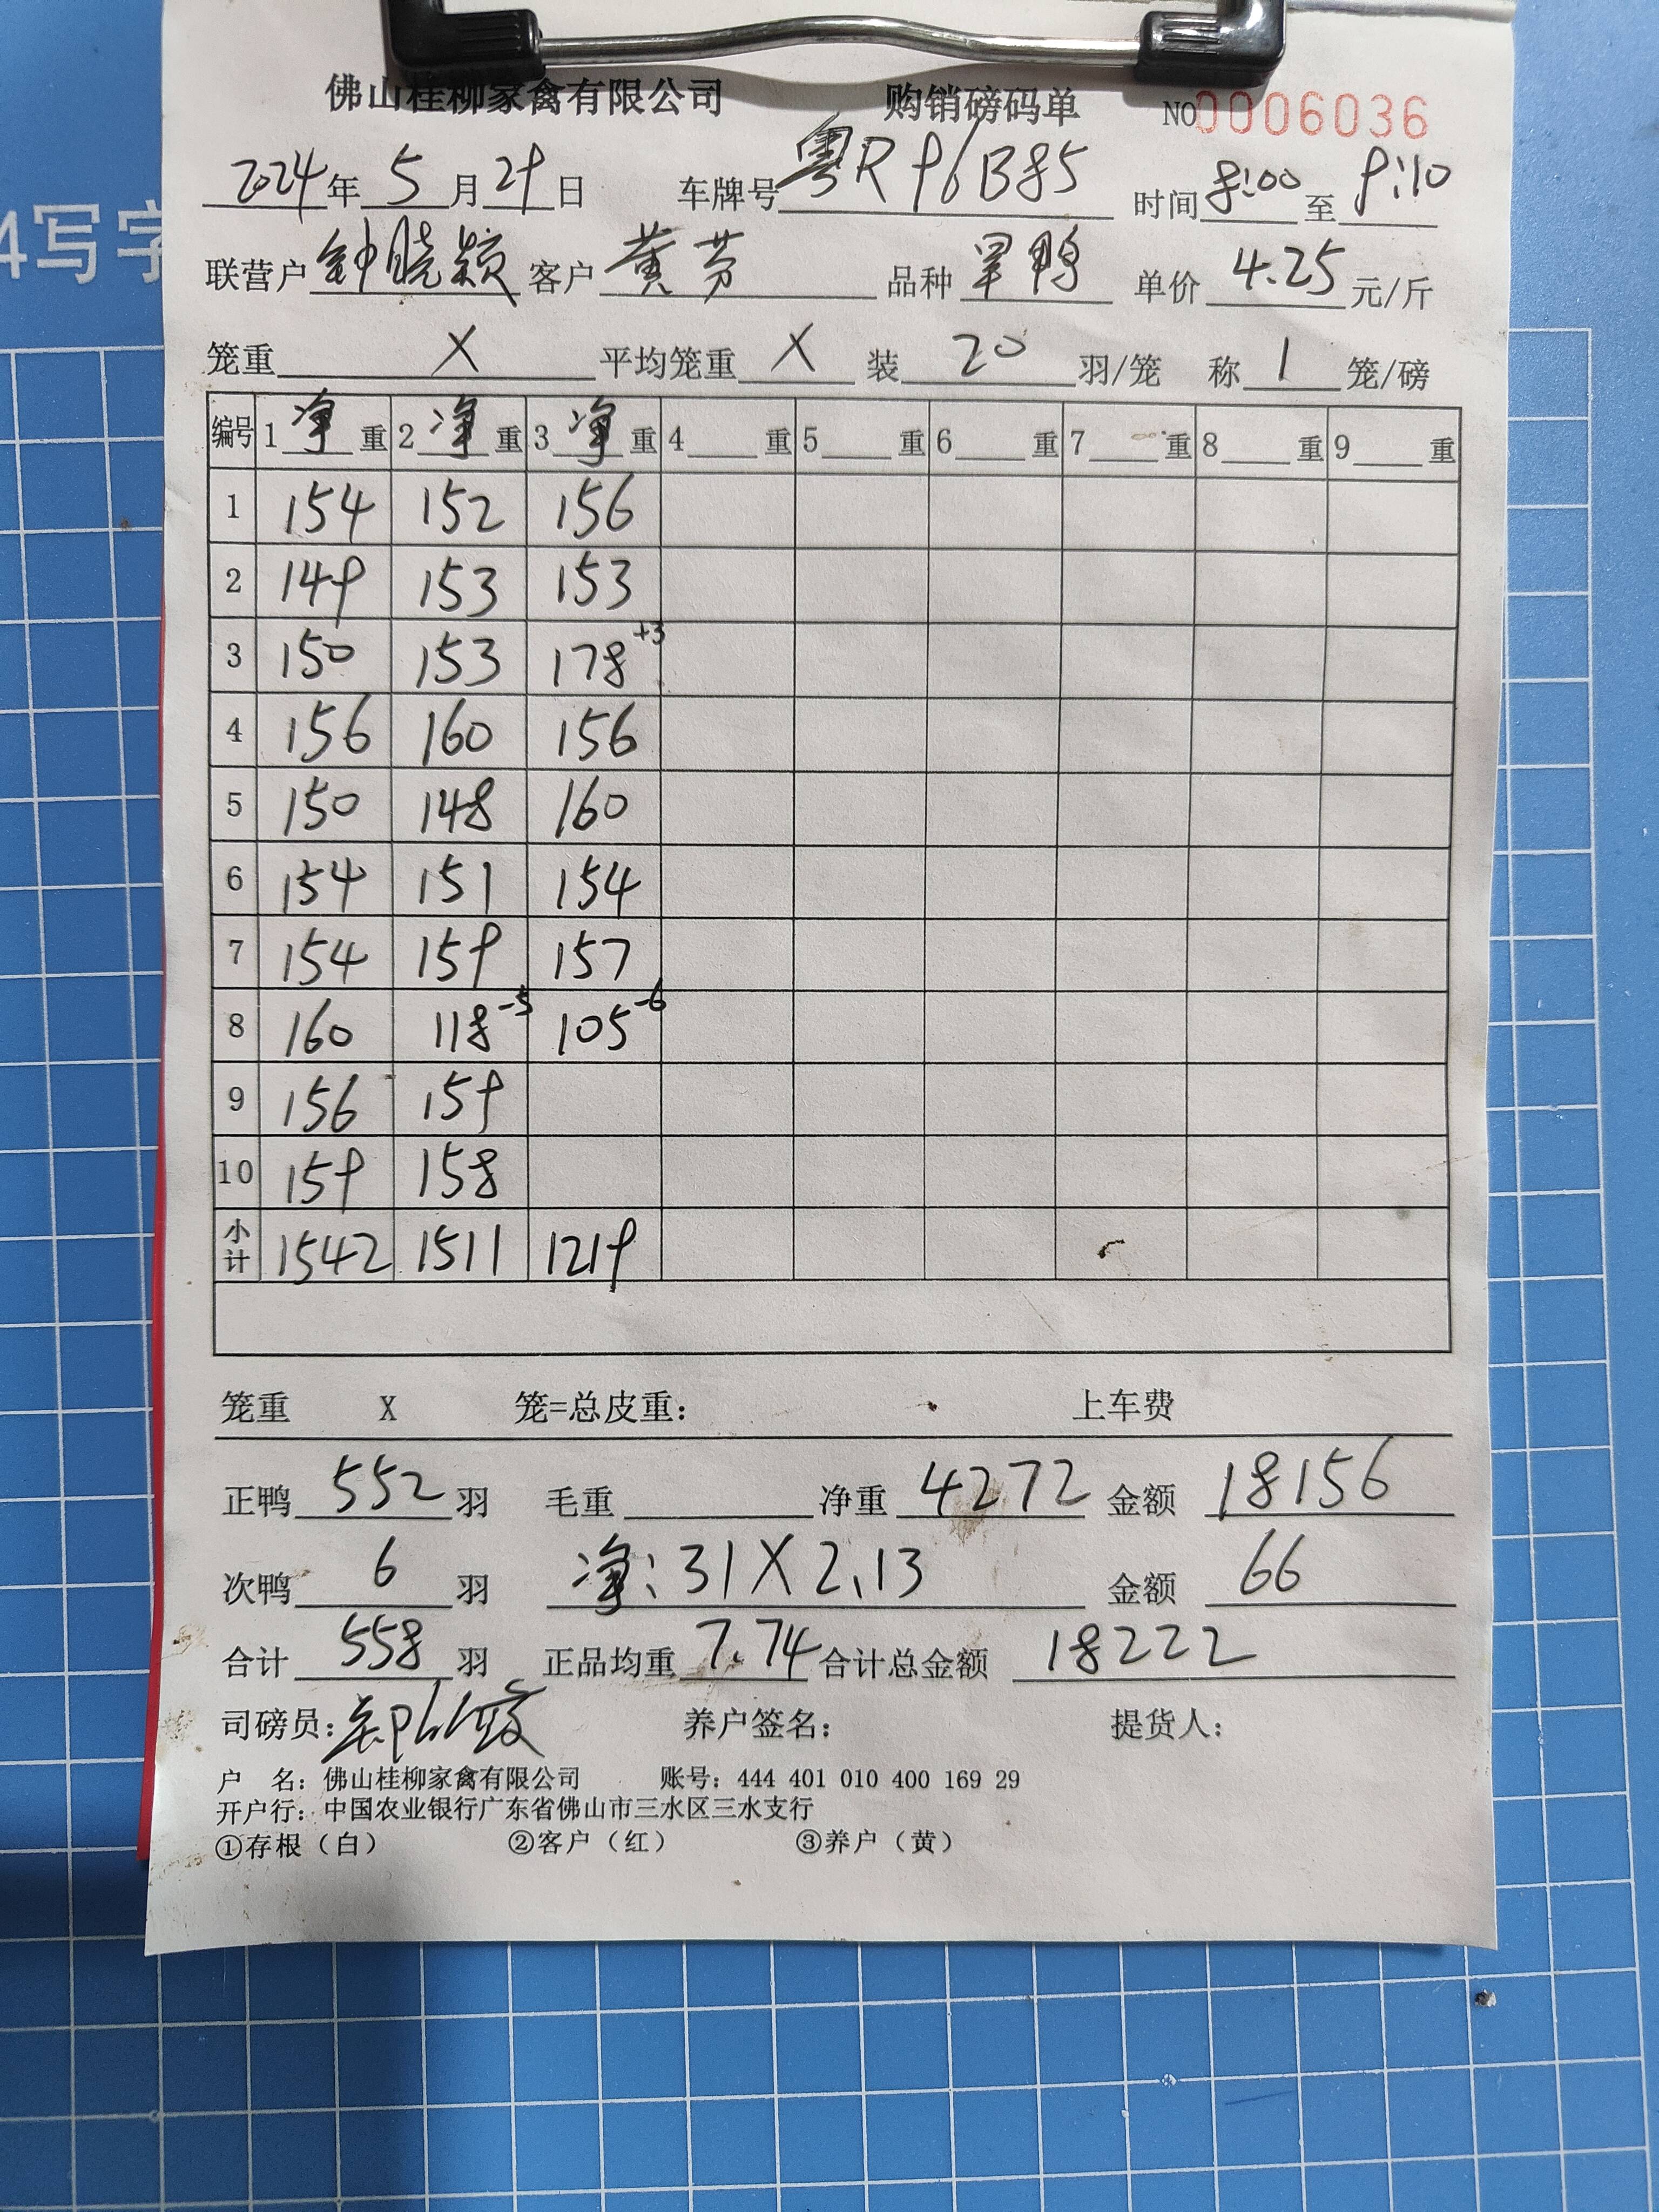 佛山桂柳家禽有限公司 购销磅码单 NO 0006036
2024年 5 月 29 日 车牌号 粤R96B85 时间 8:00 至 9:10
联营户 钟晓颖 客户 黄芬 品种 旱鸭 单价 4.25 元/斤
笼重 X 平均笼重 X 装 20 羽/笼 称 1 笼/磅
编号 1 净 重 2 净 重 3 净 重 4 重 5 重 6 重 7 重 8 重 9 重
1 154 152 156
2 149 153 153
3 150 153 178 +3
4 156 160 156
5 150 148 160
6 154 151 154
7 154 159 157
8 160 118 -5 105 -6
9 156 159
10 159 158
小计 1542 1511 1219
笼重 X 笼=总皮重: 上车费
正鸭 552 羽 毛重 净重 4272 金额 18156
次鸭 6 羽 净: 31X2.13 金额 66
合计 558 羽 正品均重 7.74 合计总金额 18222
司磅员: 养户签名: 提货人:
户 名: 佛山桂柳家禽有限公司 账号: 444 401 010 400 169 29
开户行: 中国农业银行广东省佛山市三水区三水支行
①存根（白） ②客户（红） ③养户（黄）
4写字